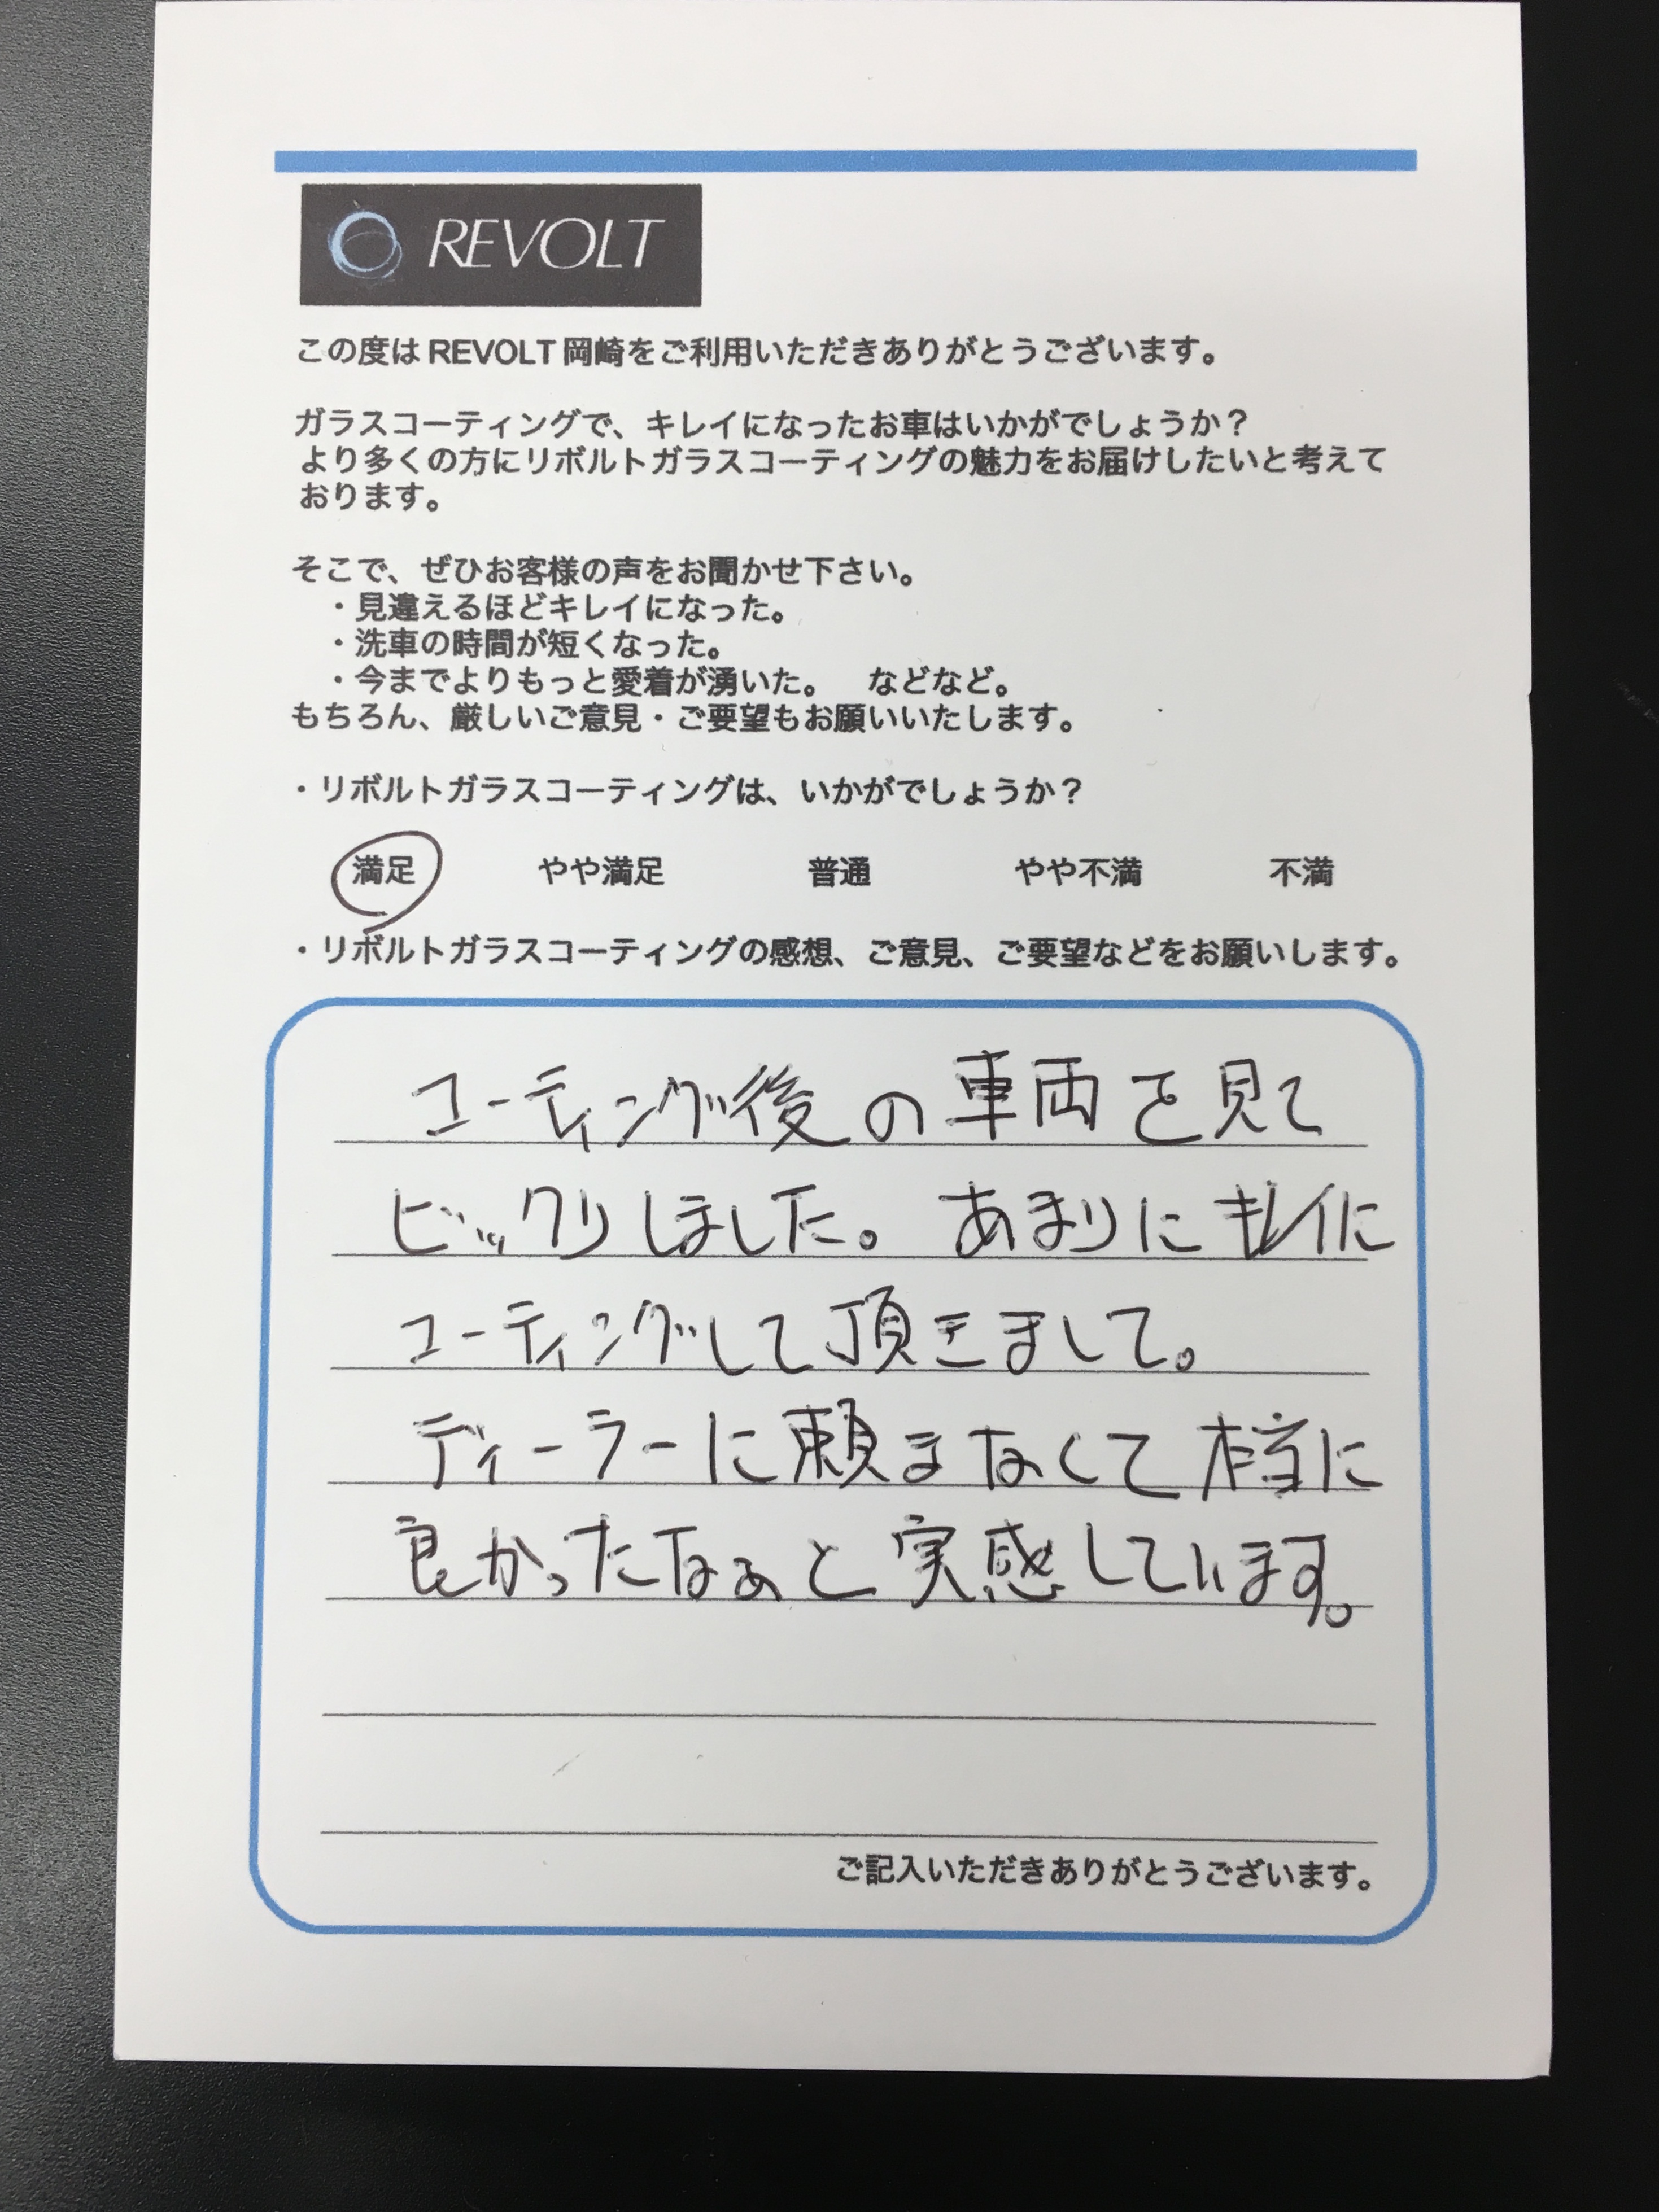 REVOLT
この度は REVOLT 岡崎をご利用いただきありがとうございます。
ガラスコーティングで、キレイになったお車はいかがでしょうか？
より多くの方にリボルトガラスコーティングの魅力をお届けしたいと考えて
おります。
そこで、ぜひお客様の声をお聞かせ下さい。
・見違えるほどキレイになった。
・洗車の時間が短くなった。
・今までよりもっと愛着が湧いた。　などなど。
もちろん、厳しいご意見・ご要望もお願いいたします。
・リボルトガラスコーティングは、いかがでしょうか？
満足　やや満足　普通　やや不満　不満
・リボルトガラスコーティングの感想、ご意見、ご要望などをお願いします。
コーティング後の車両を見て
ビックリしました。あまりにキレイに
コーティングして頂きまして。
ディーラーに頼まなくて本当に
良かったなぁと実感しています。
ご記入いただきありがとうございます。